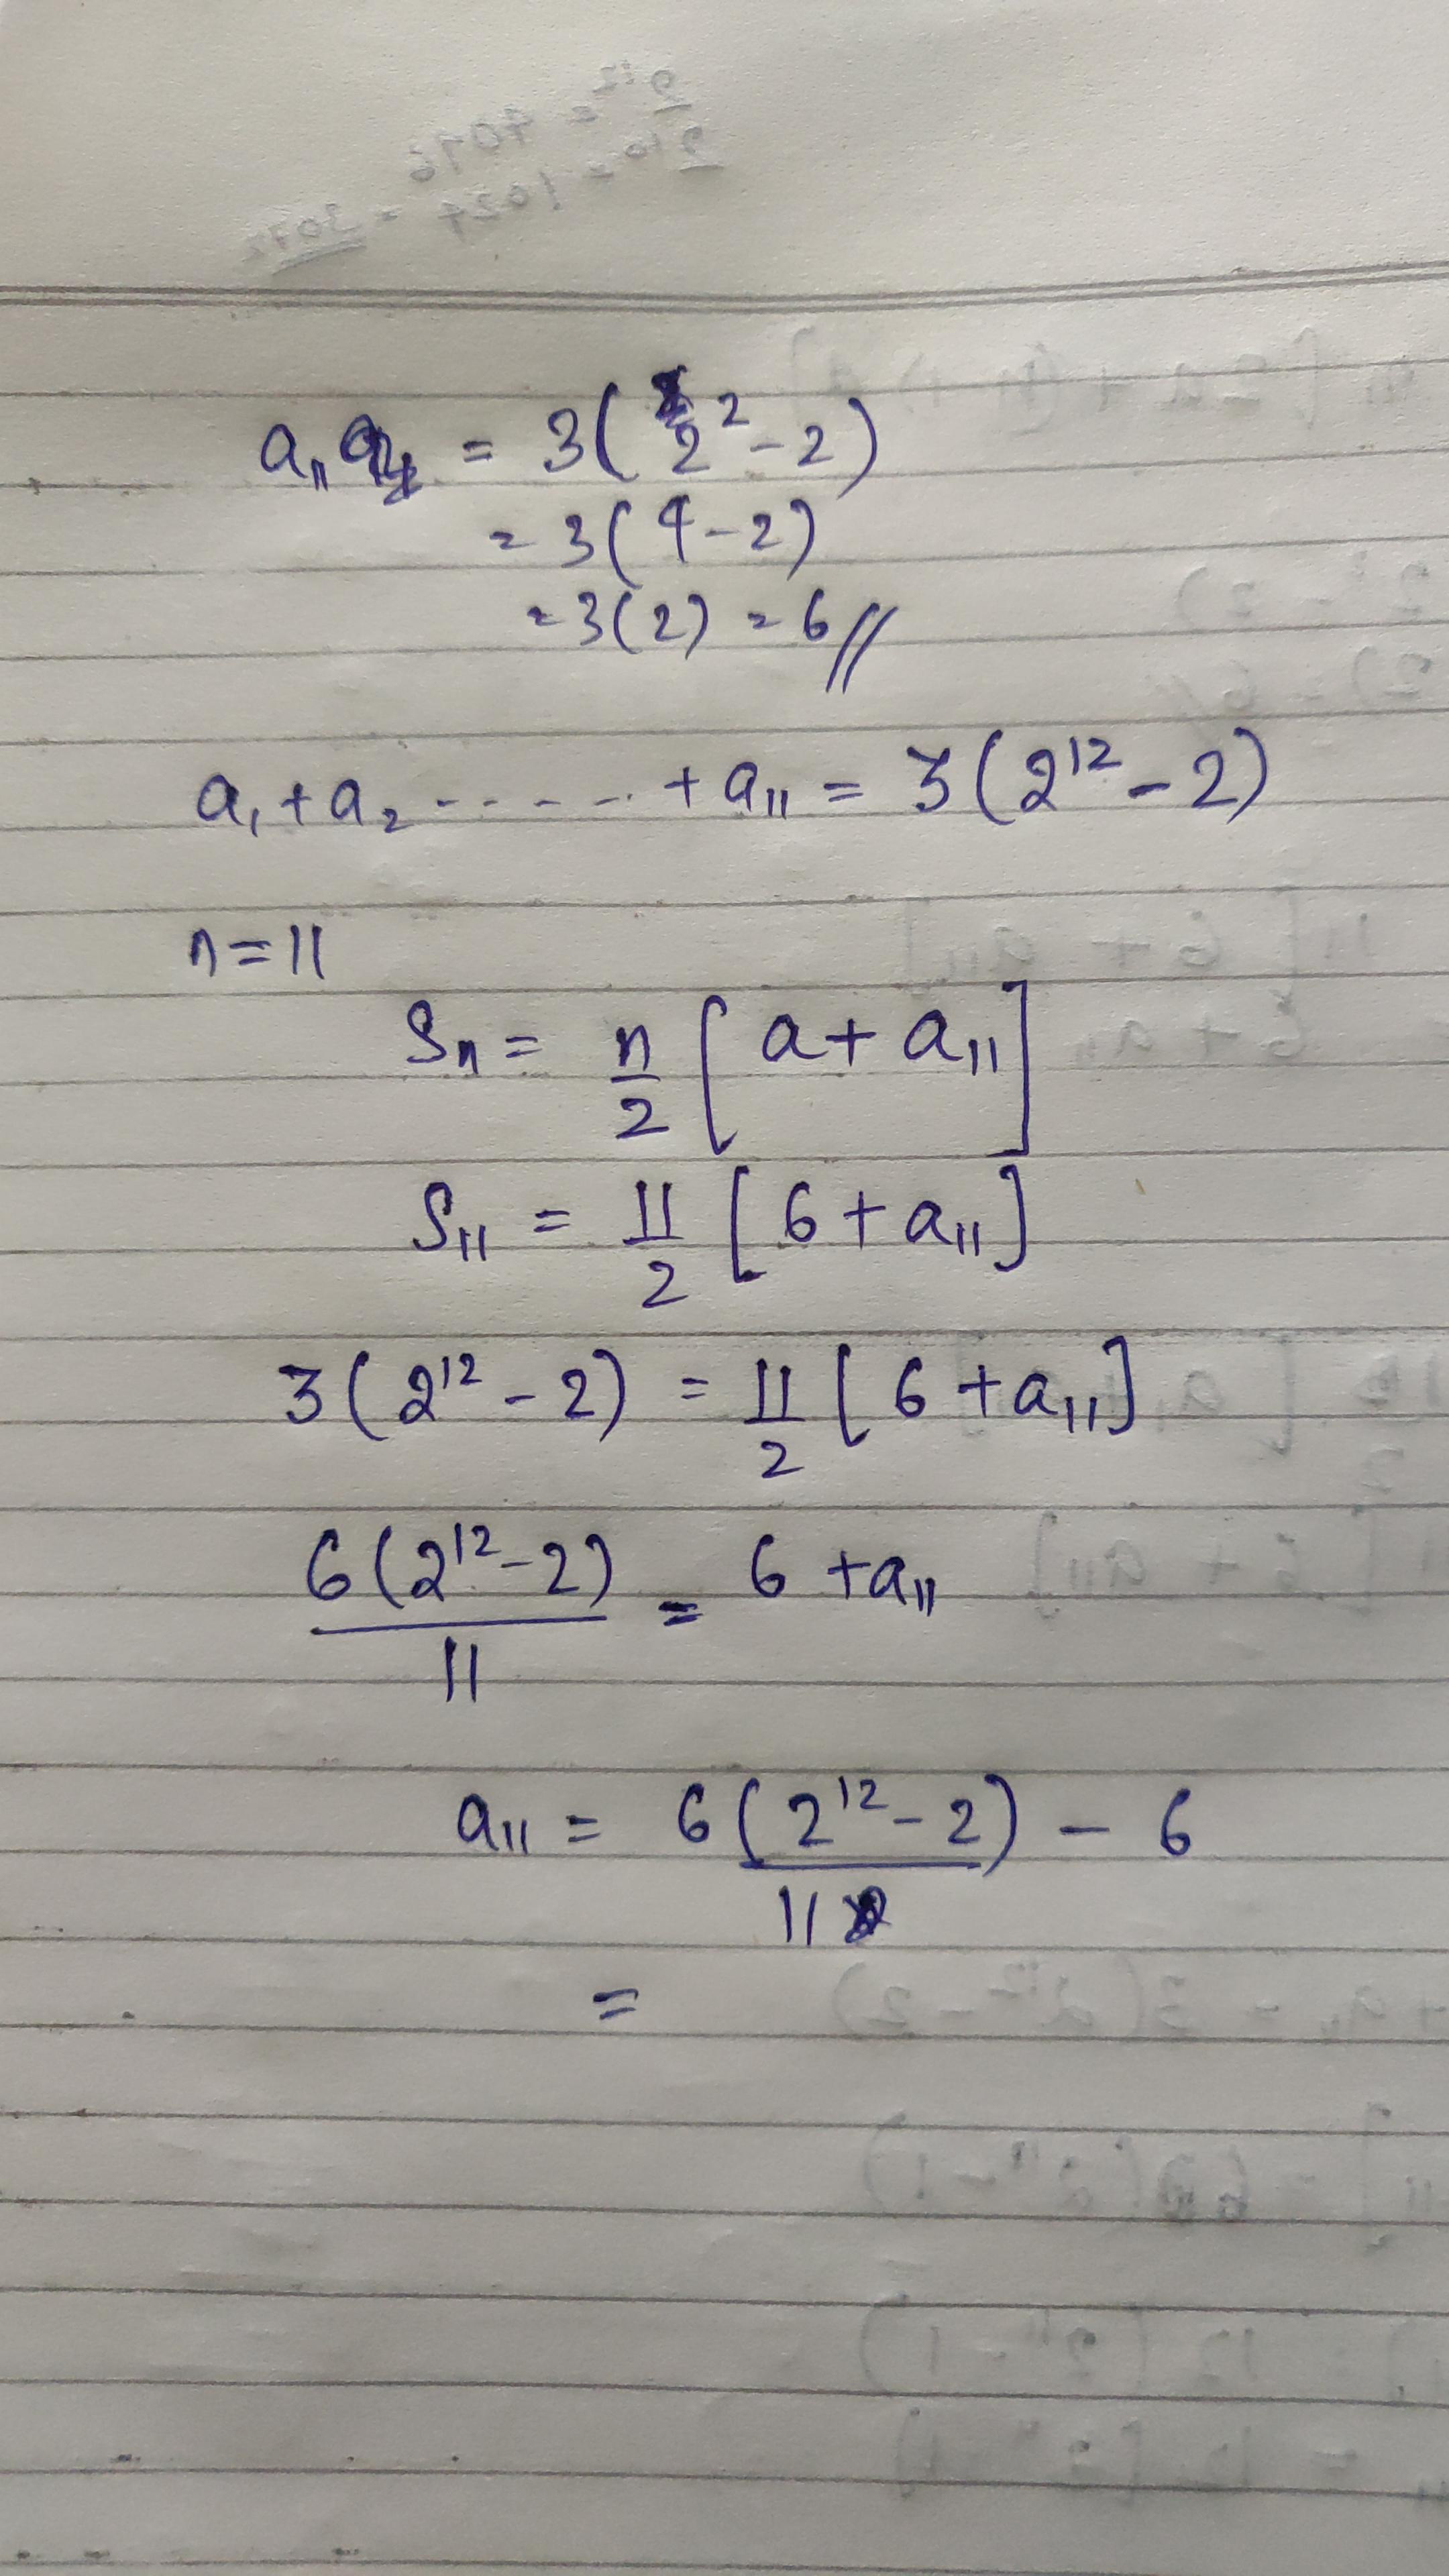 a₁₁ = 3(2² - 2)
= 3(4 - 2)
= 3(2) = 6 //
a₁ + a₂ ------ + a₁₁ = 3(2¹² - 2)
n = 11
Sₙ = n/2 [a + a₁₁]
S₁₁ = 11/2 [6 + a₁₁]
3(2¹² - 2) = 11/2 [6 + a₁₁]
6(2¹² - 2)/11 = 6 + a₁₁
a₁₁ = 6(2¹² - 2)/11 - 6
=